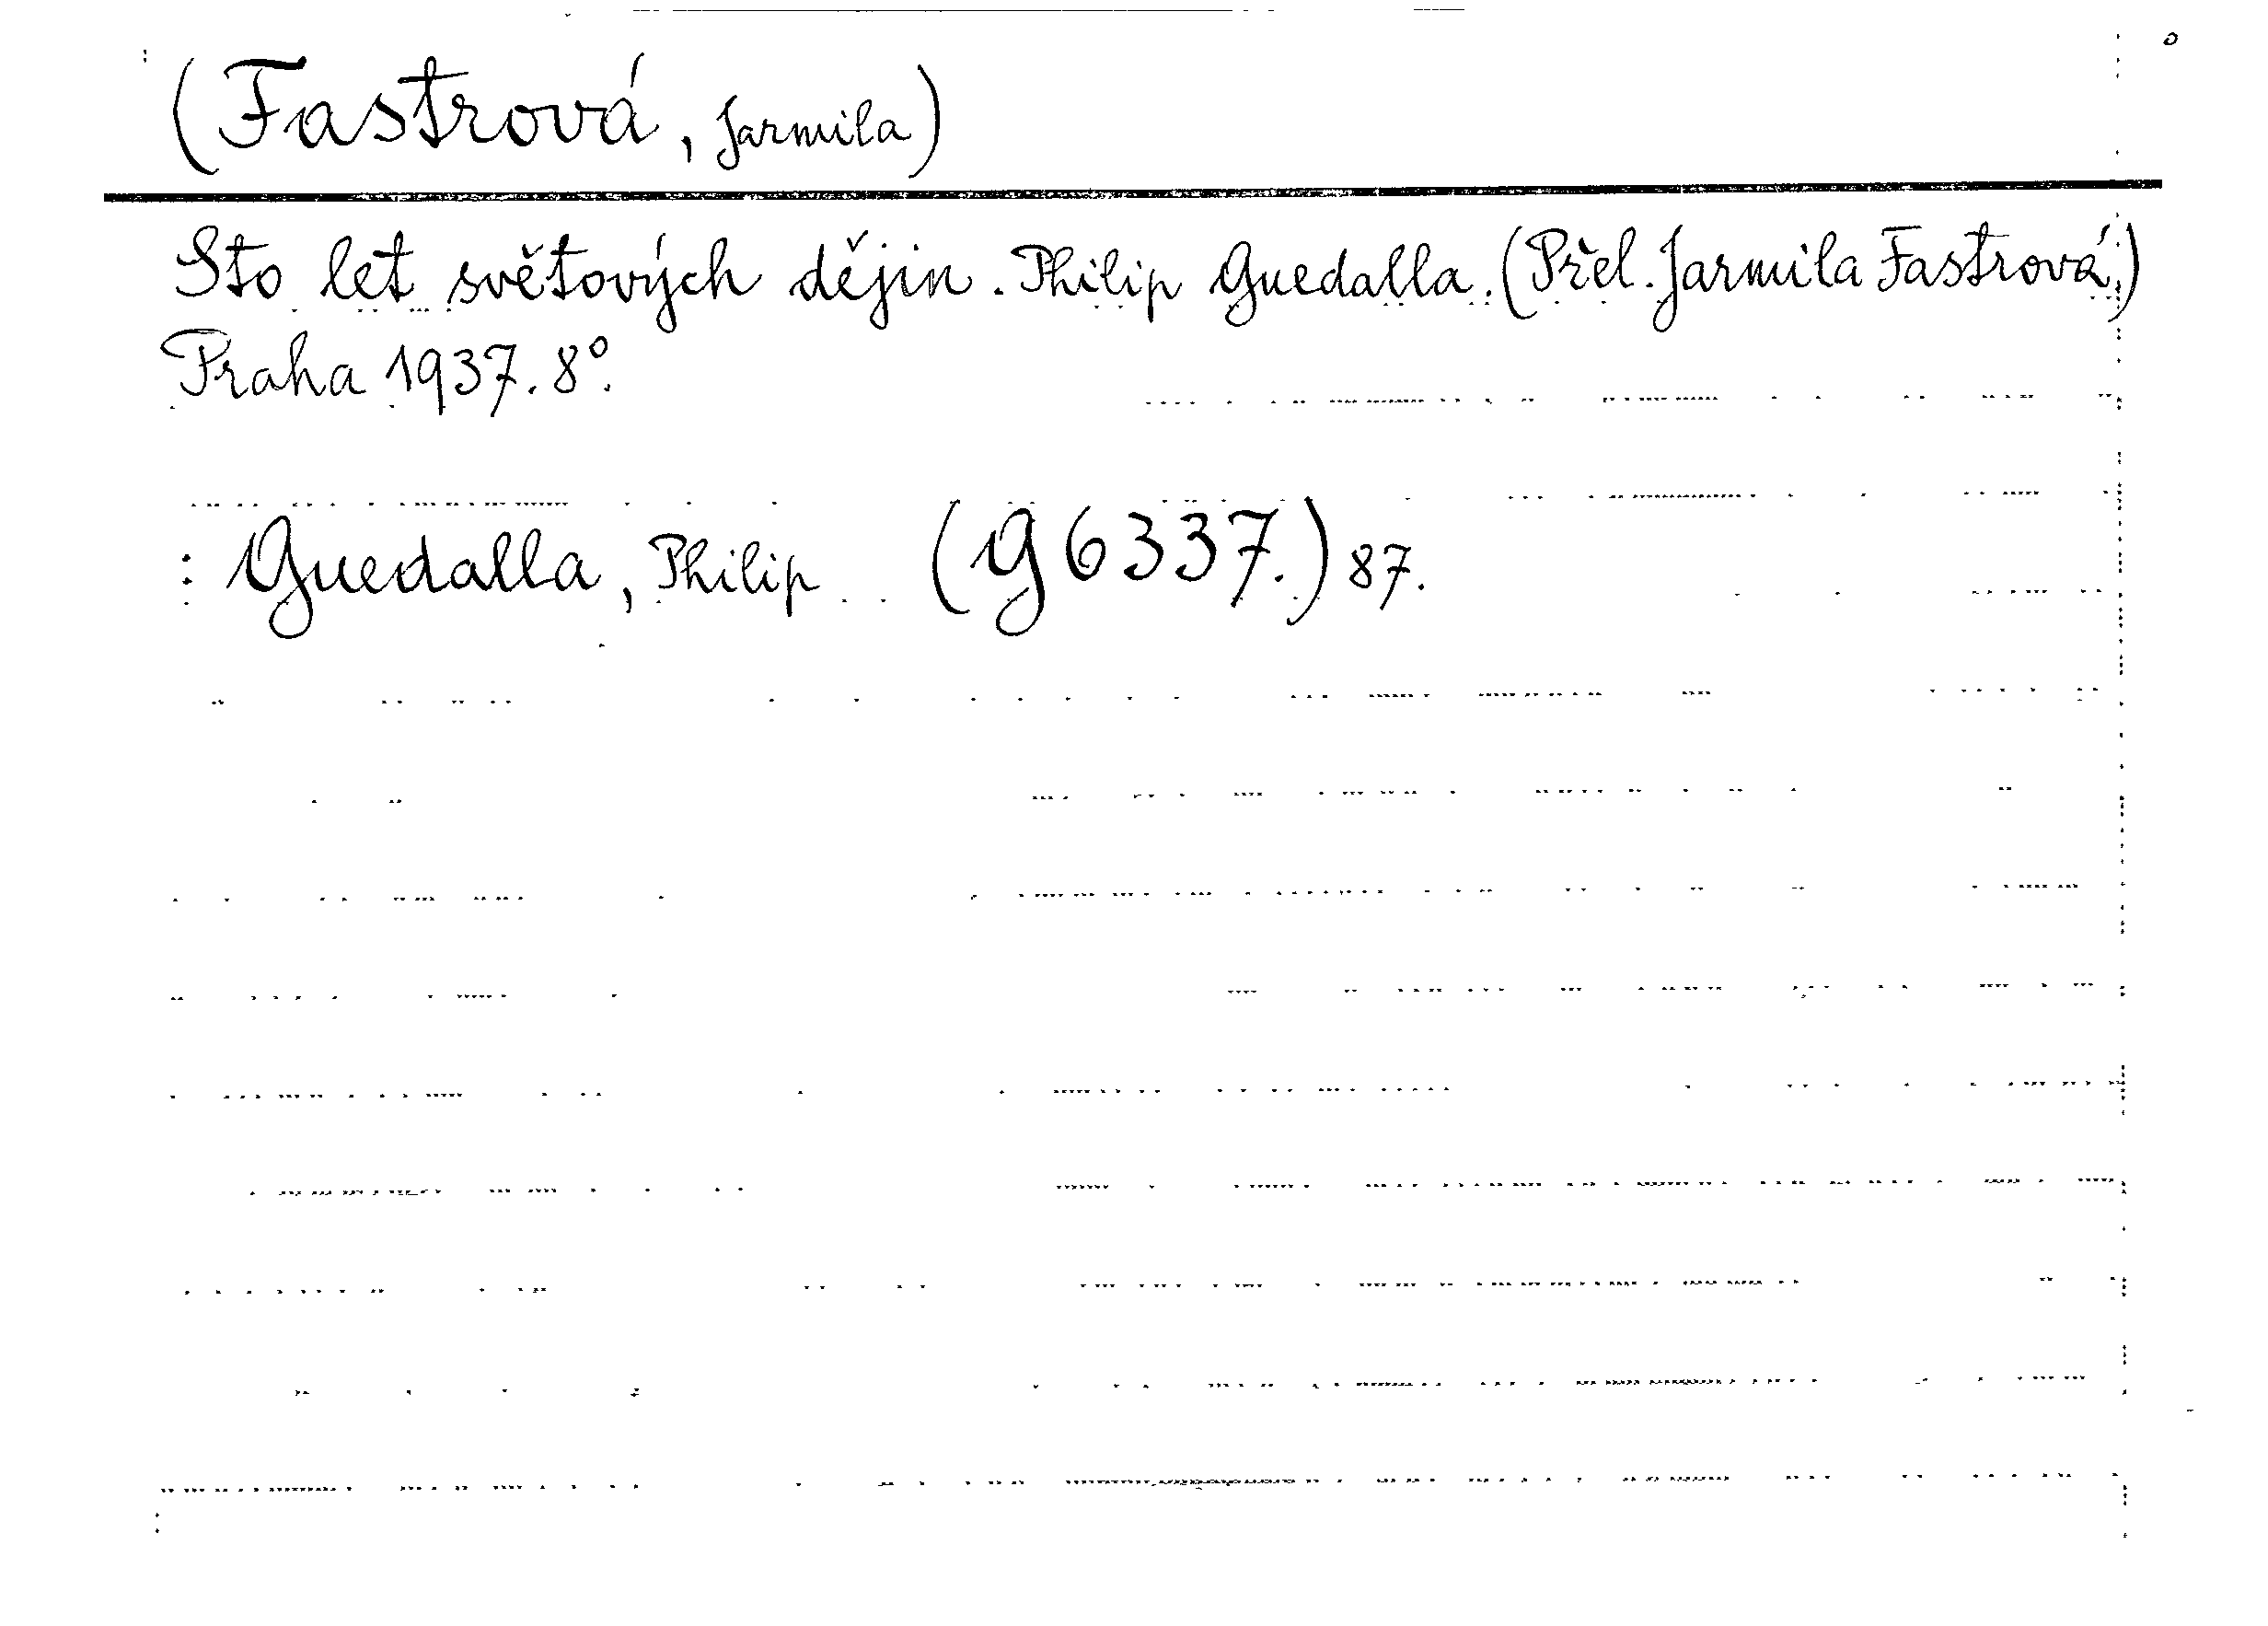 (Fastrová, Jarmila)
Sto let světových dějin. Philip Guedalla. (Přel. Jarmila Fastrová.)
Praha 1937. 8°.
: Guedalla, Philip (G 6337.) 87.